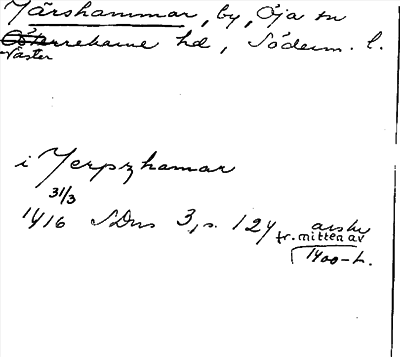 Järshammar, by, Öja sn
Österrekarne hd, Söderm. l.
Väster
i Yerpzhamar
31/3
1416 SDns 3, s. 124 avskr
fr. mitten av
1400-t.